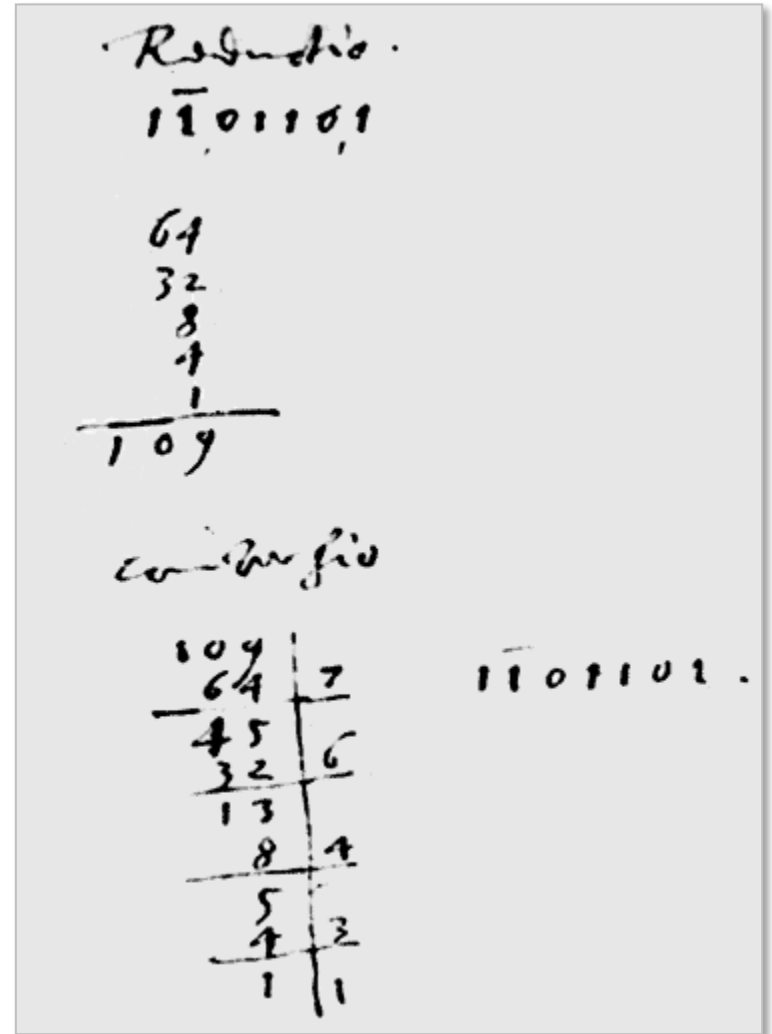 Reductio.
1101101
64
32
8
4
1
109
conversio
109
64 7
45
32 6
13
8 4
5
4 3
1 1
1101101.